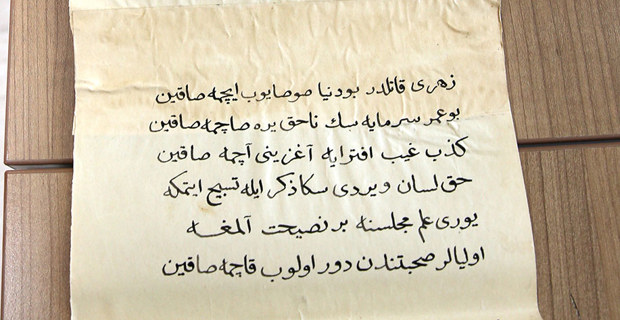 زهرى قاتلدر بو دنيا صو صايوب ايچمه صاقين
بو عمر سرمايه سڭ ناحق يره صاچمه صاقين
كذب غيب افترايه آغزينى آچمه صاقين
حق لسان ويردى سكا ذكر ايله تسبيح ايتمكه
يورى علم مجلسنه بر نصيحت آلمغه
اوليالر صحبتندن دور اولوب قاچمه صاقين